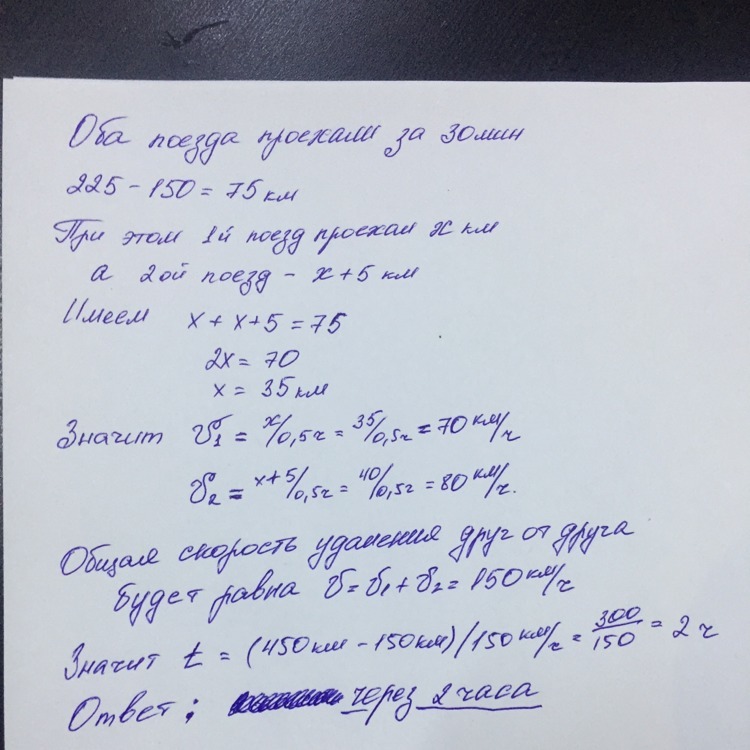 Оба поезда проехали за 30 мин
225 - 150 = 75 км
При этом 1й поезд проехал x км
а 2ой поезд - x + 5 км
Имеем x + x + 5 = 75
2x = 70
x = 35 км
Значит V₁ = x/0,5ч = 35/0,5ч = 70 км/ч
V₂ = x+5/0,5ч = 40/0,5ч = 80 км/ч.
Общая скорость удаления друг от друга
будет равна V = V₁ + V₂ = 150 км/ч
Значит t = (450 км - 150 км) / 150 км/ч = 300/150 = 2 ч
Ответ: через 2 часа